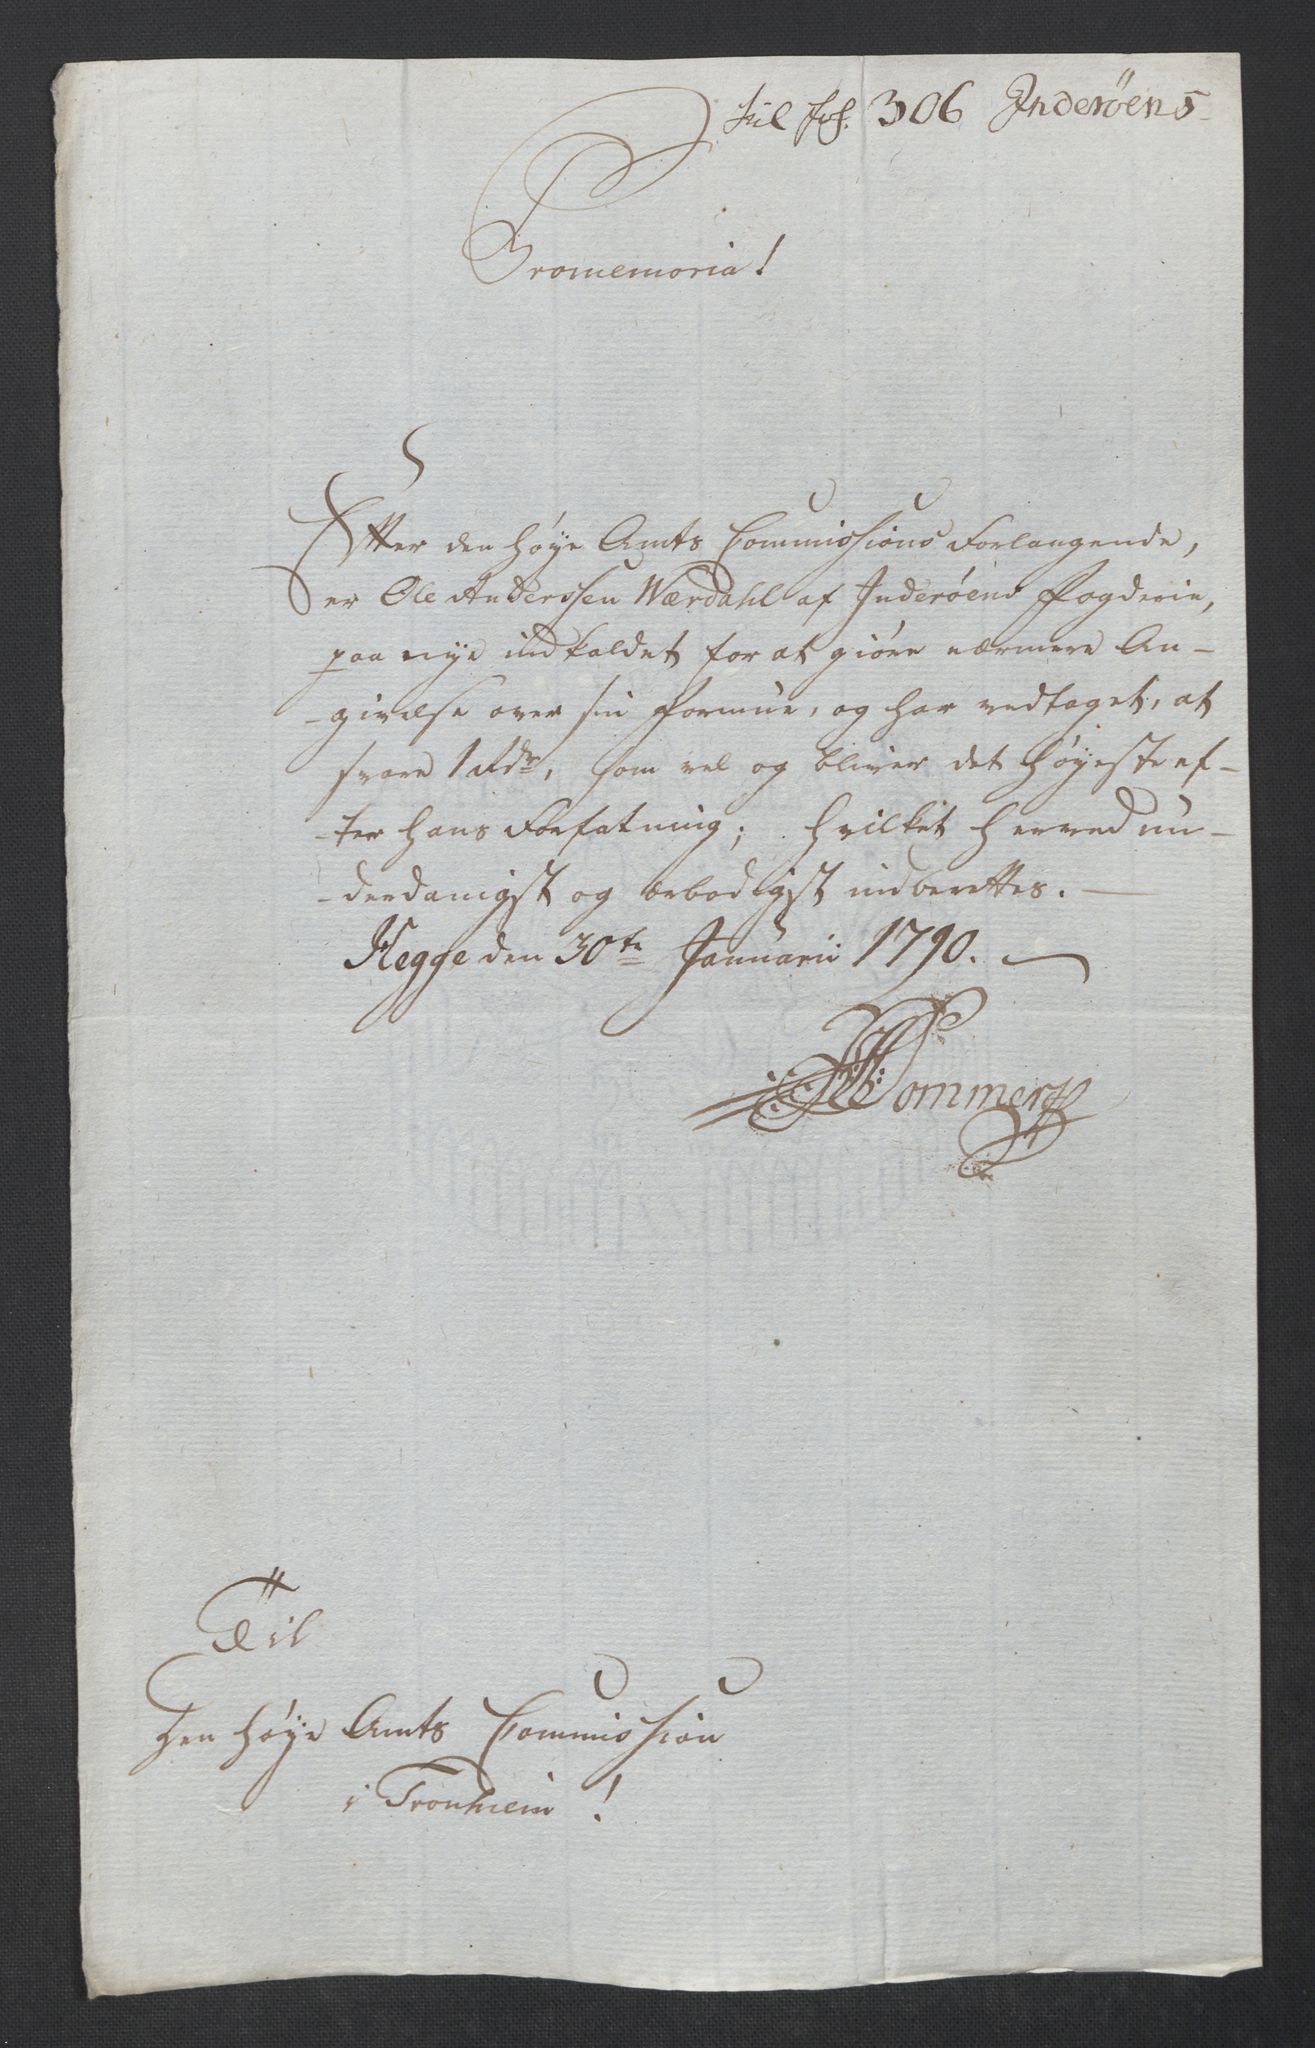 til fol. 306 Inderöens
Promemoria!
Efter den høye Amts Commissions Forlangende,
er Ole Anderssen Wærdahl af Inderøens Fogderie,
paa nye indkaldet for at giøre nærmere An-
-givelse over sin Formue, og har vedtaget, at
svare 1 Rdr, som vel og bliver det høyeste ef-
-ter hans Forfatning; hvilket herved un-
-derdanigst og ærbødigst indberettes.
Hegge den 30te Januarii 1790.
Pommer
Til
Den høye Amts Commission
i Tronhiem!